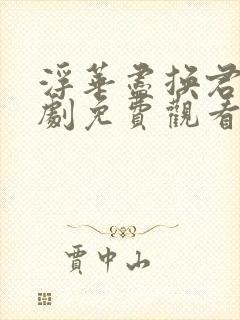 浮華盡換君
劇免費觀看
賈中山